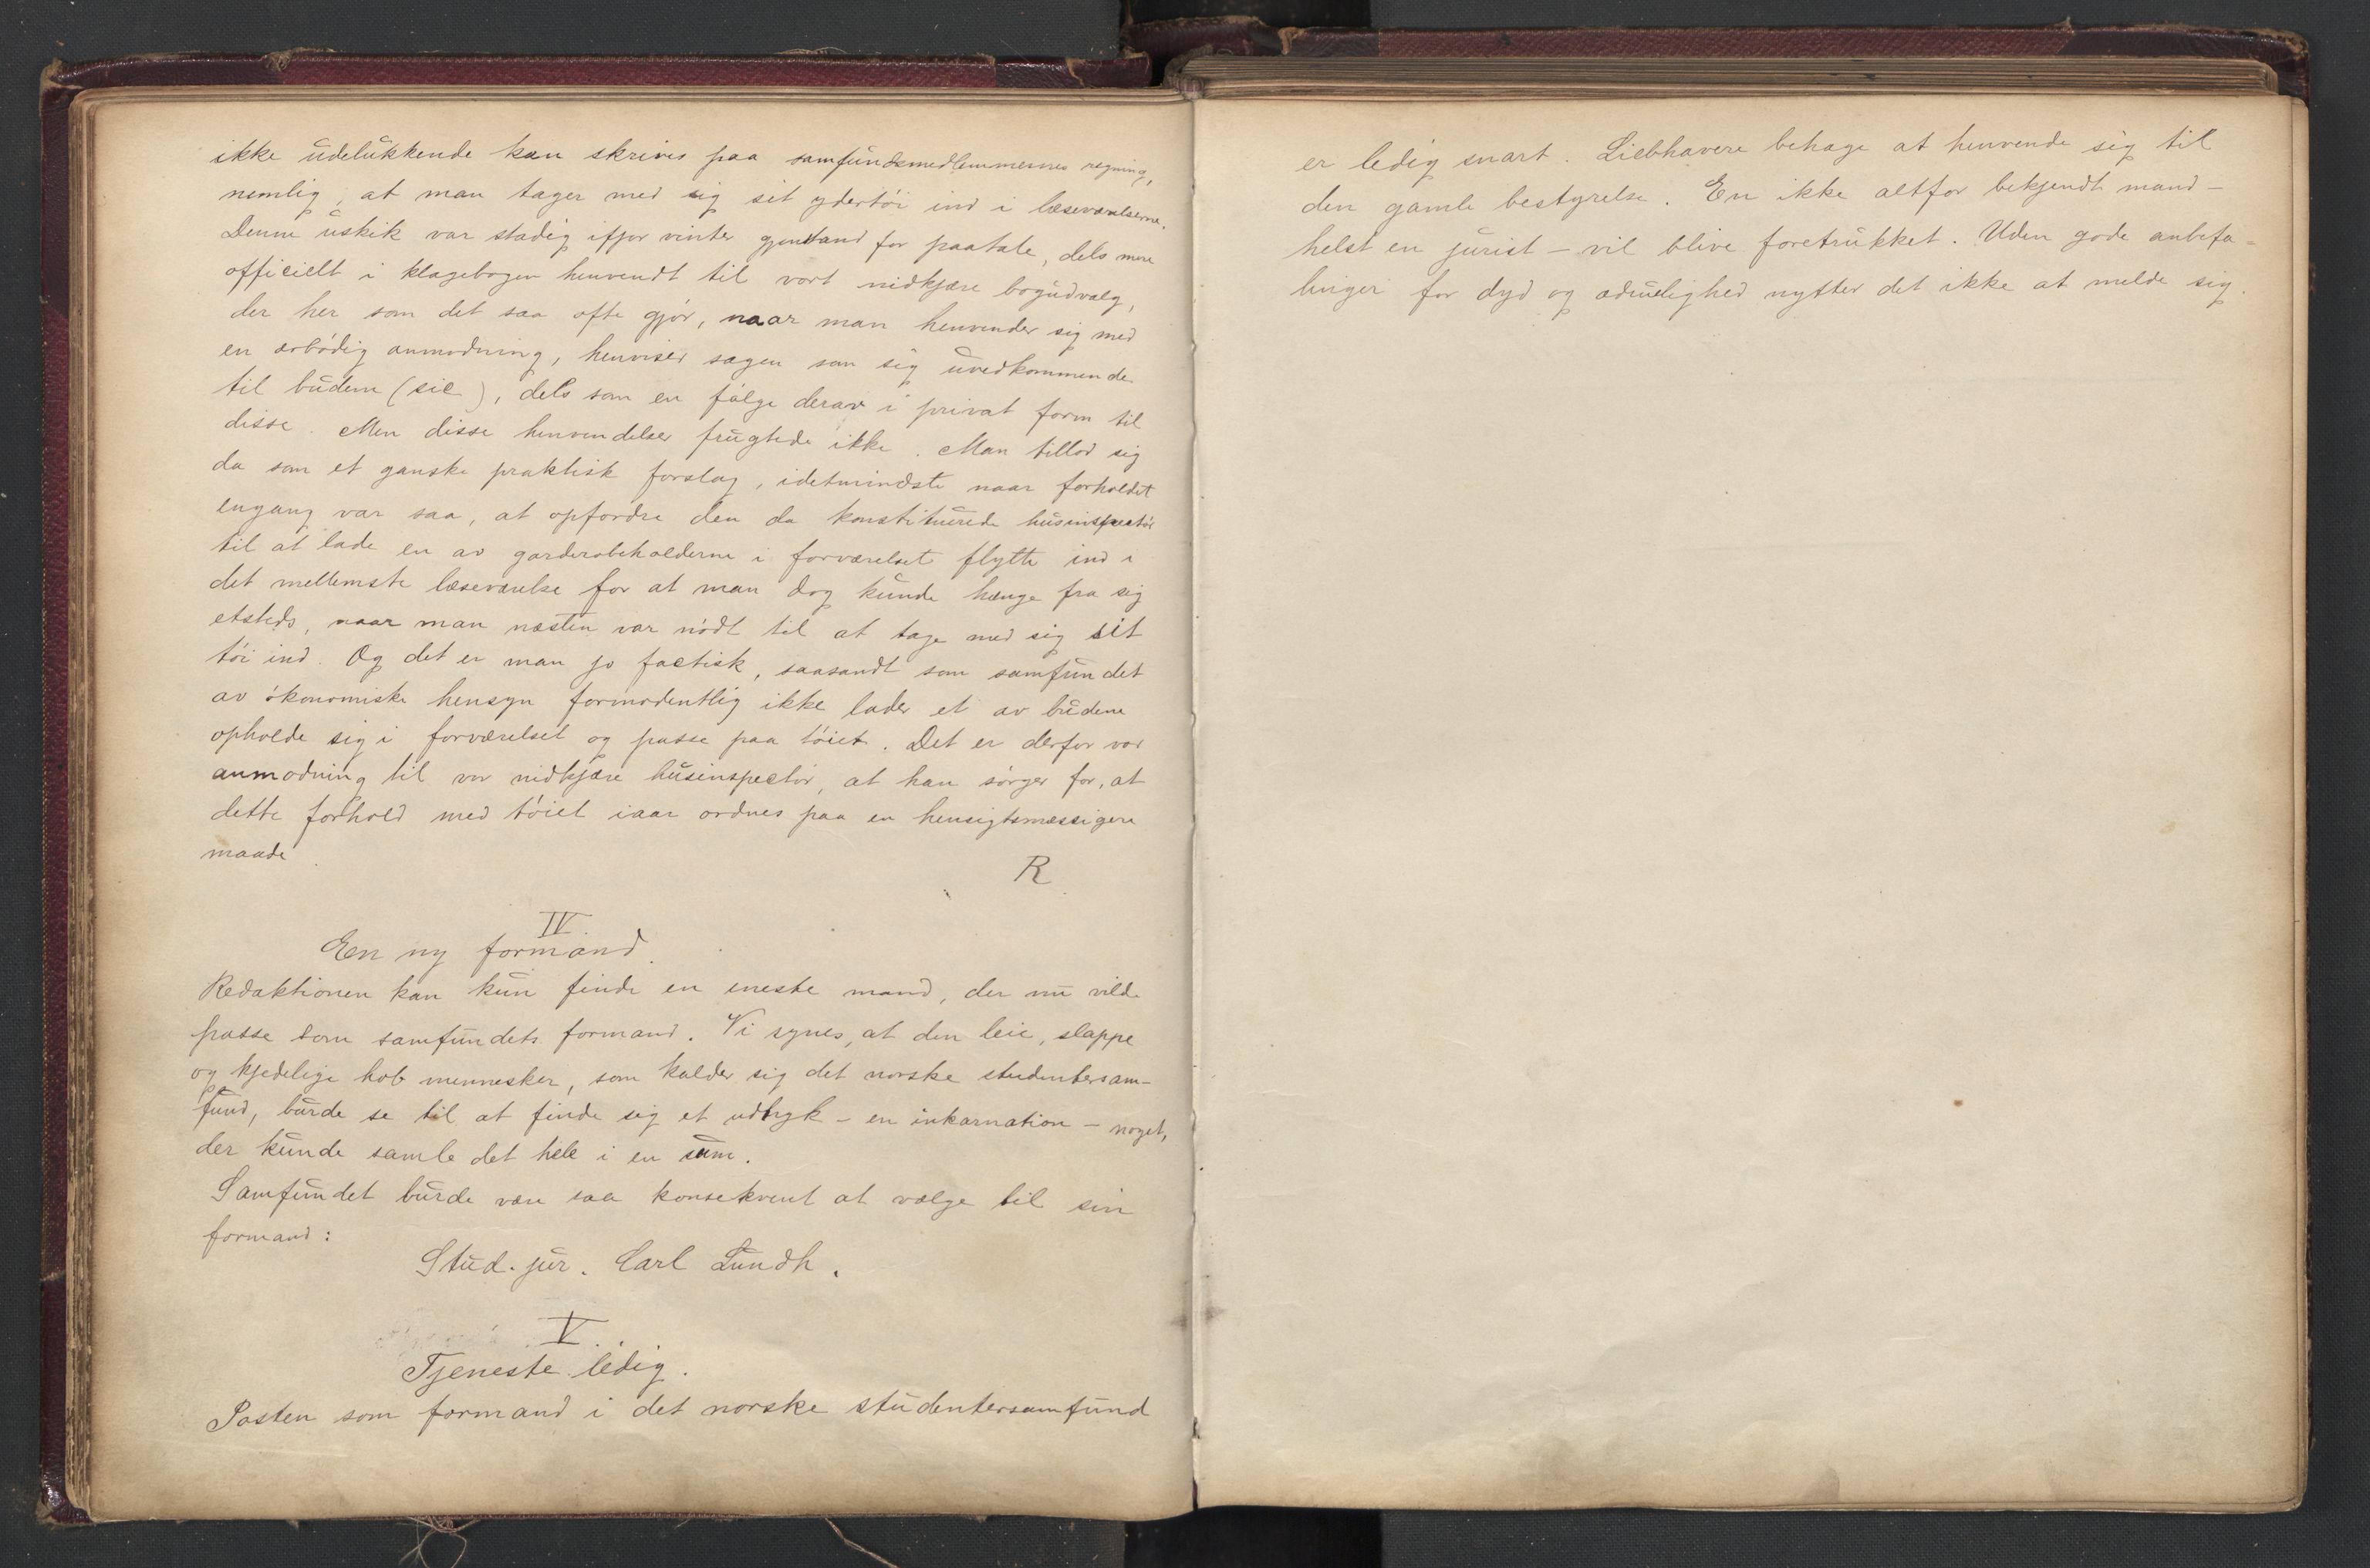 ikke udelukkende kan skrives paa samfundsmedlemmernes regning,
nemlig, at man tager med sig sit ydertöi ind i læseværelserne.
Denne uskik var stadig ifjor vinter gjenstand for paatale, dels mere
officielt i klagebogen henvendt til vort nidkjære bogudvalg,
der her som det saa ofte gjör, naar man henvender sig med
en ærbödig anmodning, henviser sagen som sig uvedkommende
til budene (sic), dels som en fölge derav i privat form til
disse. Men disse henvendelser frugtede ikke. Man tillod sig
da som et ganske praktisk forslag, idetmindste naar forholdet
engang var saa, at opfordre den da konstituerede husinspectör
til at lade en av garderobeholderne i forværelset flytte ind i
det mellemste læseværelse for at man dog kunde hænge fra sig
etsteds, naar man næsten var nödt til at tage med sig sit
töi ind. Og det er man jo factisk, saasandt som samfundet
av ökonomiske hensyn formodentlig ikke lader et av budene
opholde sig i forværelset og passe paa töiet. Det er derfor vor
anmodning til vor nidkjære husinspectör, at han sörger for, at
dette forhold med töiet iaar ordnes paa en hensigtsmæssigere
maade.
R
IV
En ny formand.
Redaktionen kan kun finde en eneste mand, der nu vilde
passe som samfundets formand. Vi synes, at den leie, slappe
og kjedelige hob mennesker, som kalder sig det norske studentersam-
fund, burde se til at finde sig et udtryk – en inkarnation – noget,
der kunde samle det hele i en sum.
Samfundet burde være saa konsekvent at vælge til sin
formand:
Stud. jur. Carl Lundh.
V.
Tjeneste ledig.
Posten som formand i det norske studentersamfund
er ledig snart. Liebhavere behage at henvende sig til
den gamle bestyrelse. En ikke altfor bekjendt mand –
helst en jurist – vil blive foretrukket. Uden gode anbefa-
linger for dyd og ædruelighed nytter det ikke at melde sig.